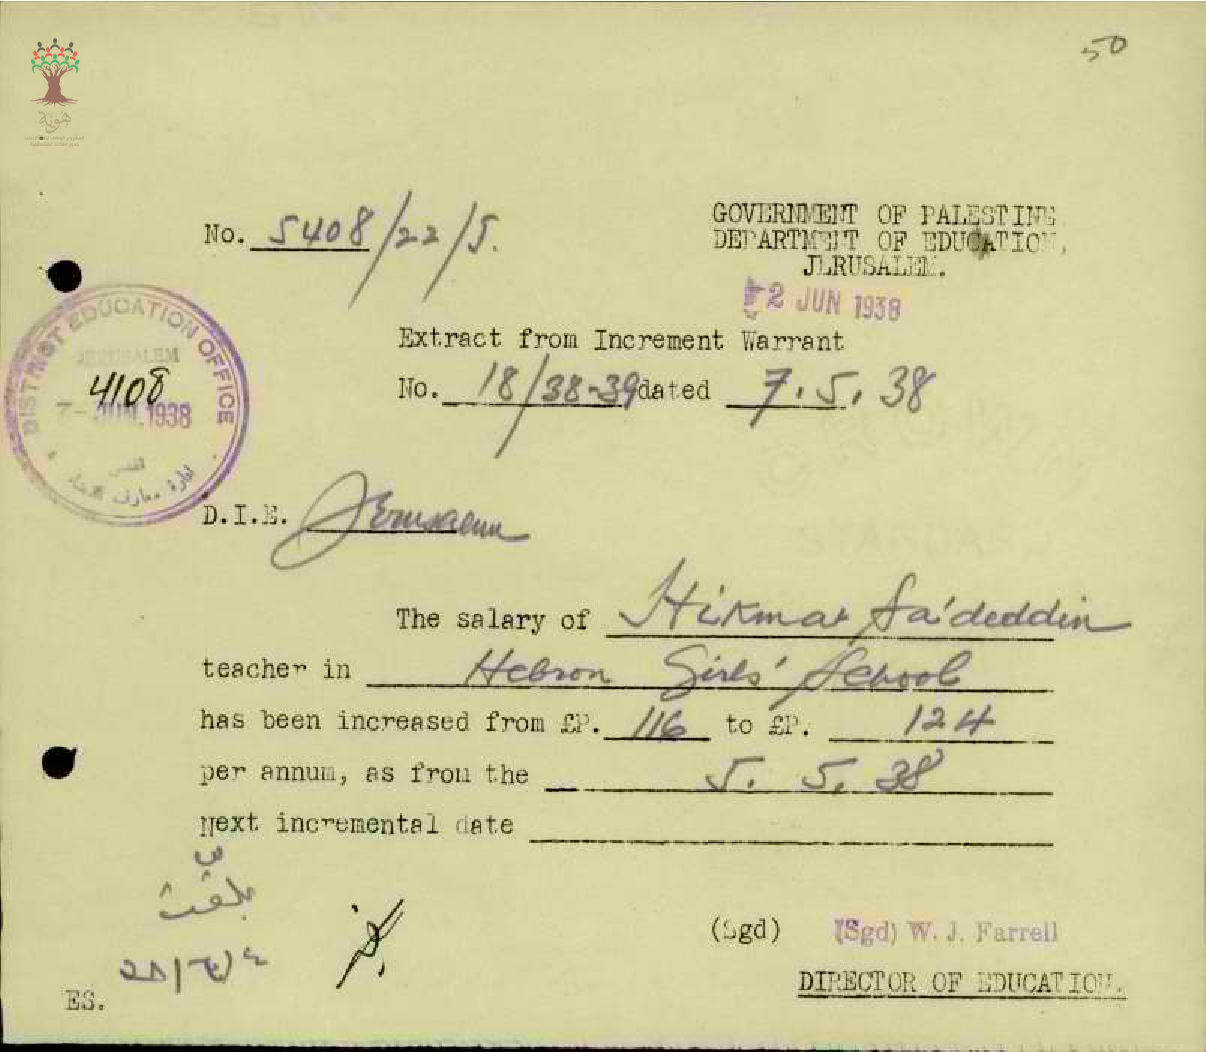 50
هوية
No. 5408/22/5.
GOVERNMENT OF PALESTINE
DEPARTMENT OF EDUCATION,
JERUSALEM.
2 JUN 1938
Extract from Increment Warrant
No. 18/38-39 dated 7.5.38
DISTRICT EDUCATION OFFICE
JERUSALEM
4108
7- JUN. 1938
القدس
ادارة معارف
D.I.E. Jerusalem
The salary of Hikmat Sa'deddin
teacher in Hebron Girls' School
has been increased from £P. 116 to £P. 124
per annum, as from the 5. 5. 38
Next incremental date
بلغت
(Sgd) (Sgd) W. J. Farrell
DIRECTOR OF EDUCATION.
ES.